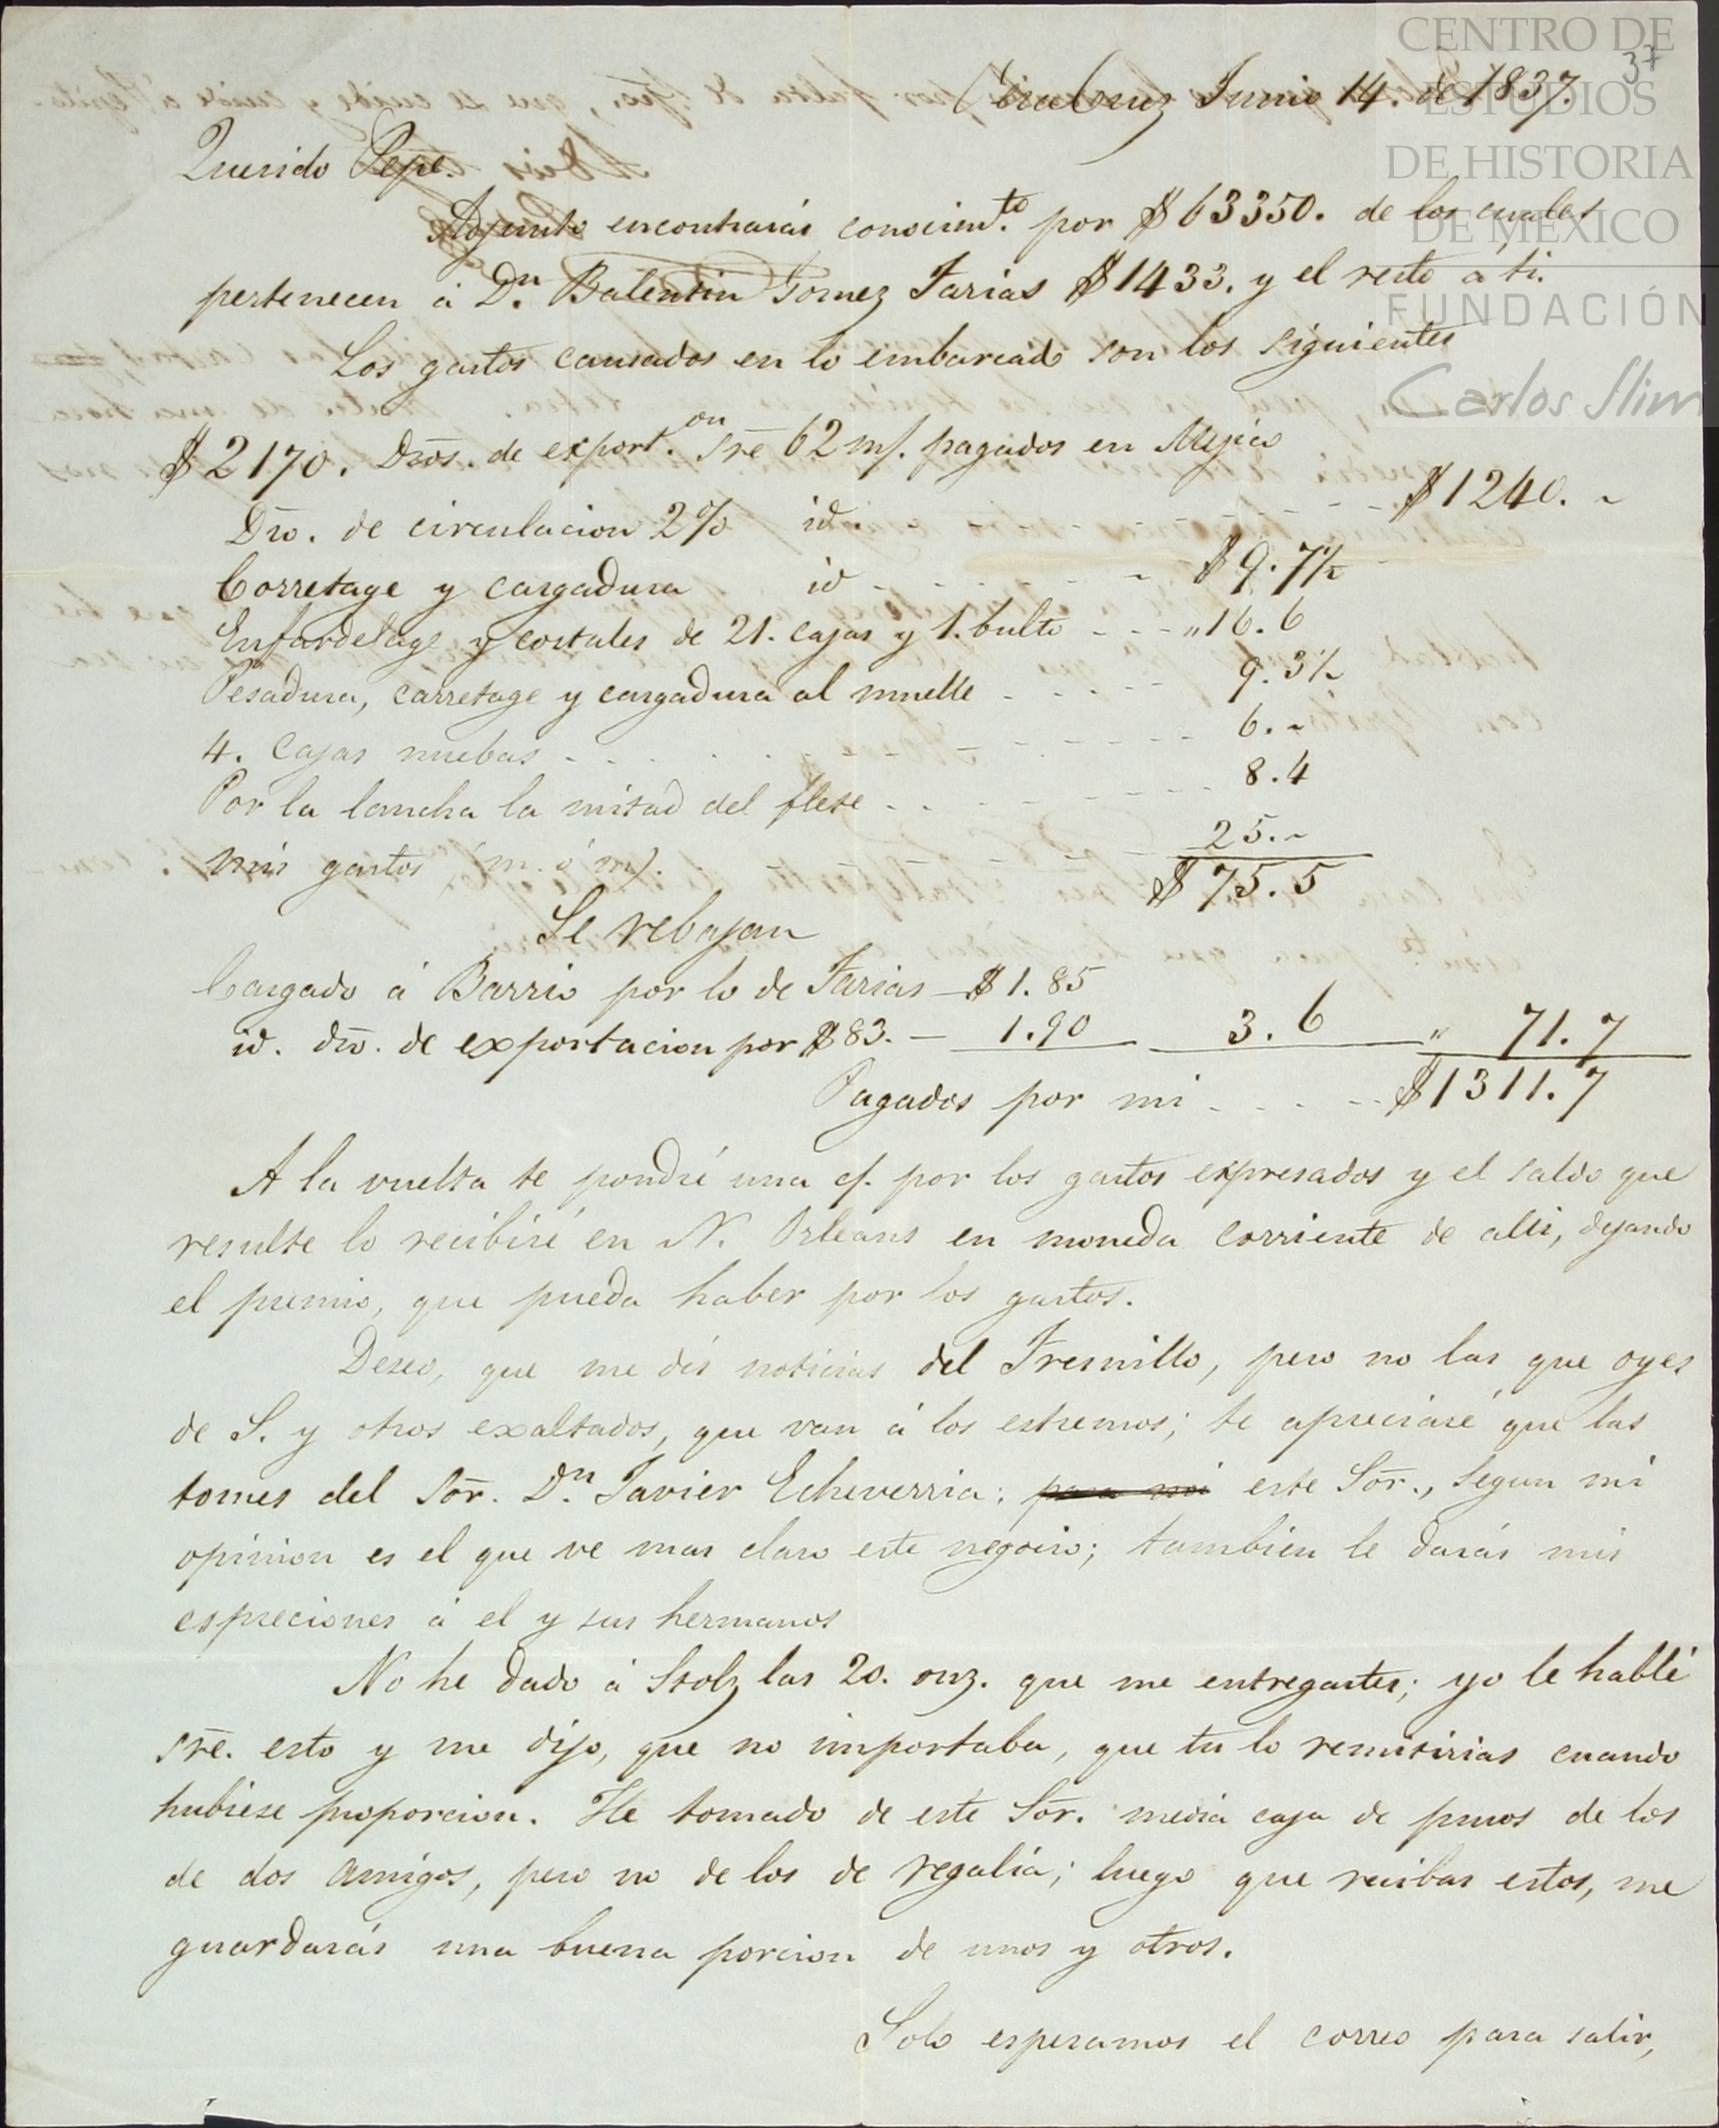 CENTRO DE
ESTUDIOS
DE HISTORIA
DE MÉXICO
FUNDACIÓN
Carlos Slim
37
VeraCruz Junio 14. de 1837.
Querido Pepe.
Adjunto encontrarás conocim.to por $63350. de los cuales
pertenecen á D.n Balentin Gomez Farias $1433. y el resto á ti.
Los gastos causados en lo embarcado son los siguientes
$2170. Dros. de export.on sre 62 m/. pagados en Mejico
$1240. ~
Dro. de circulacion 2% id. $9.7½
Corretage y cargadura id „16.6
Enfardelage y costales de 21. cajas y 1. bulto 9.3½
Pesadura, carretage y cargadura al muelle 6. ~
4. Cajas nuebas 8.4
Por la lancha la mitad del flete 25. ~
mis gastos (m. ó m). $75.5
Se rebajan
Cargado á Barrio por lo de Farias $1.85
id. dro. de exportacion por $83. 1.90 3.6 „ 71.7
Pagados por mi $1311.7
A la vuelta te pondré una c/. por los gastos expresados y el saldo que
resulte lo recibiré en N. Orleans en moneda corriente de alli, dejando
el premio, que pueda haber por los gastos.
Deseo, que me dés noticias del Fresnillo, pero no las que oyes
de S. y otros exaltados, que van á los estremos; te apreciaré que las
tomes del Sor. D.n Javier Echeverria; para mi este Sor., segun mi
opinion es el que ve mas claro este negocio; tambien le darás mis
espreciones á el y sus hermanos
No he dado á Stolz las 20. onz. que me entregastes; yo le hablé
sre. esto y me dijo, que no importaba, que tu lo remitirias cuando
hubiese proporcion. He tomado de este Sor. media caja de puros de los
de dos amigos, pero no de los de regalia; luego que recibas estos, me
guardarás una buena porcion de unos y otros.
Solo esperamos el correo para salir,